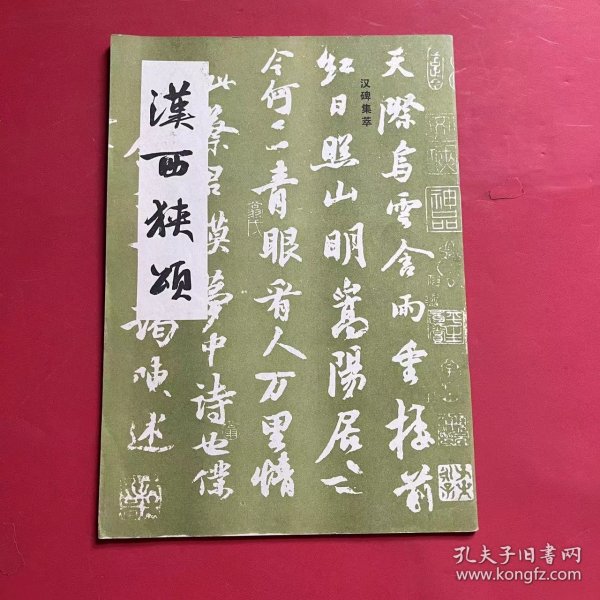 漢西狹頌
汉碑集萃
天際烏雲含雨重樓前
紅日照山明嵩陽居士
今何在青眼看人万里情
此蔡君謨夢中詩也僕
孔夫子旧书网
www.kongfz.com